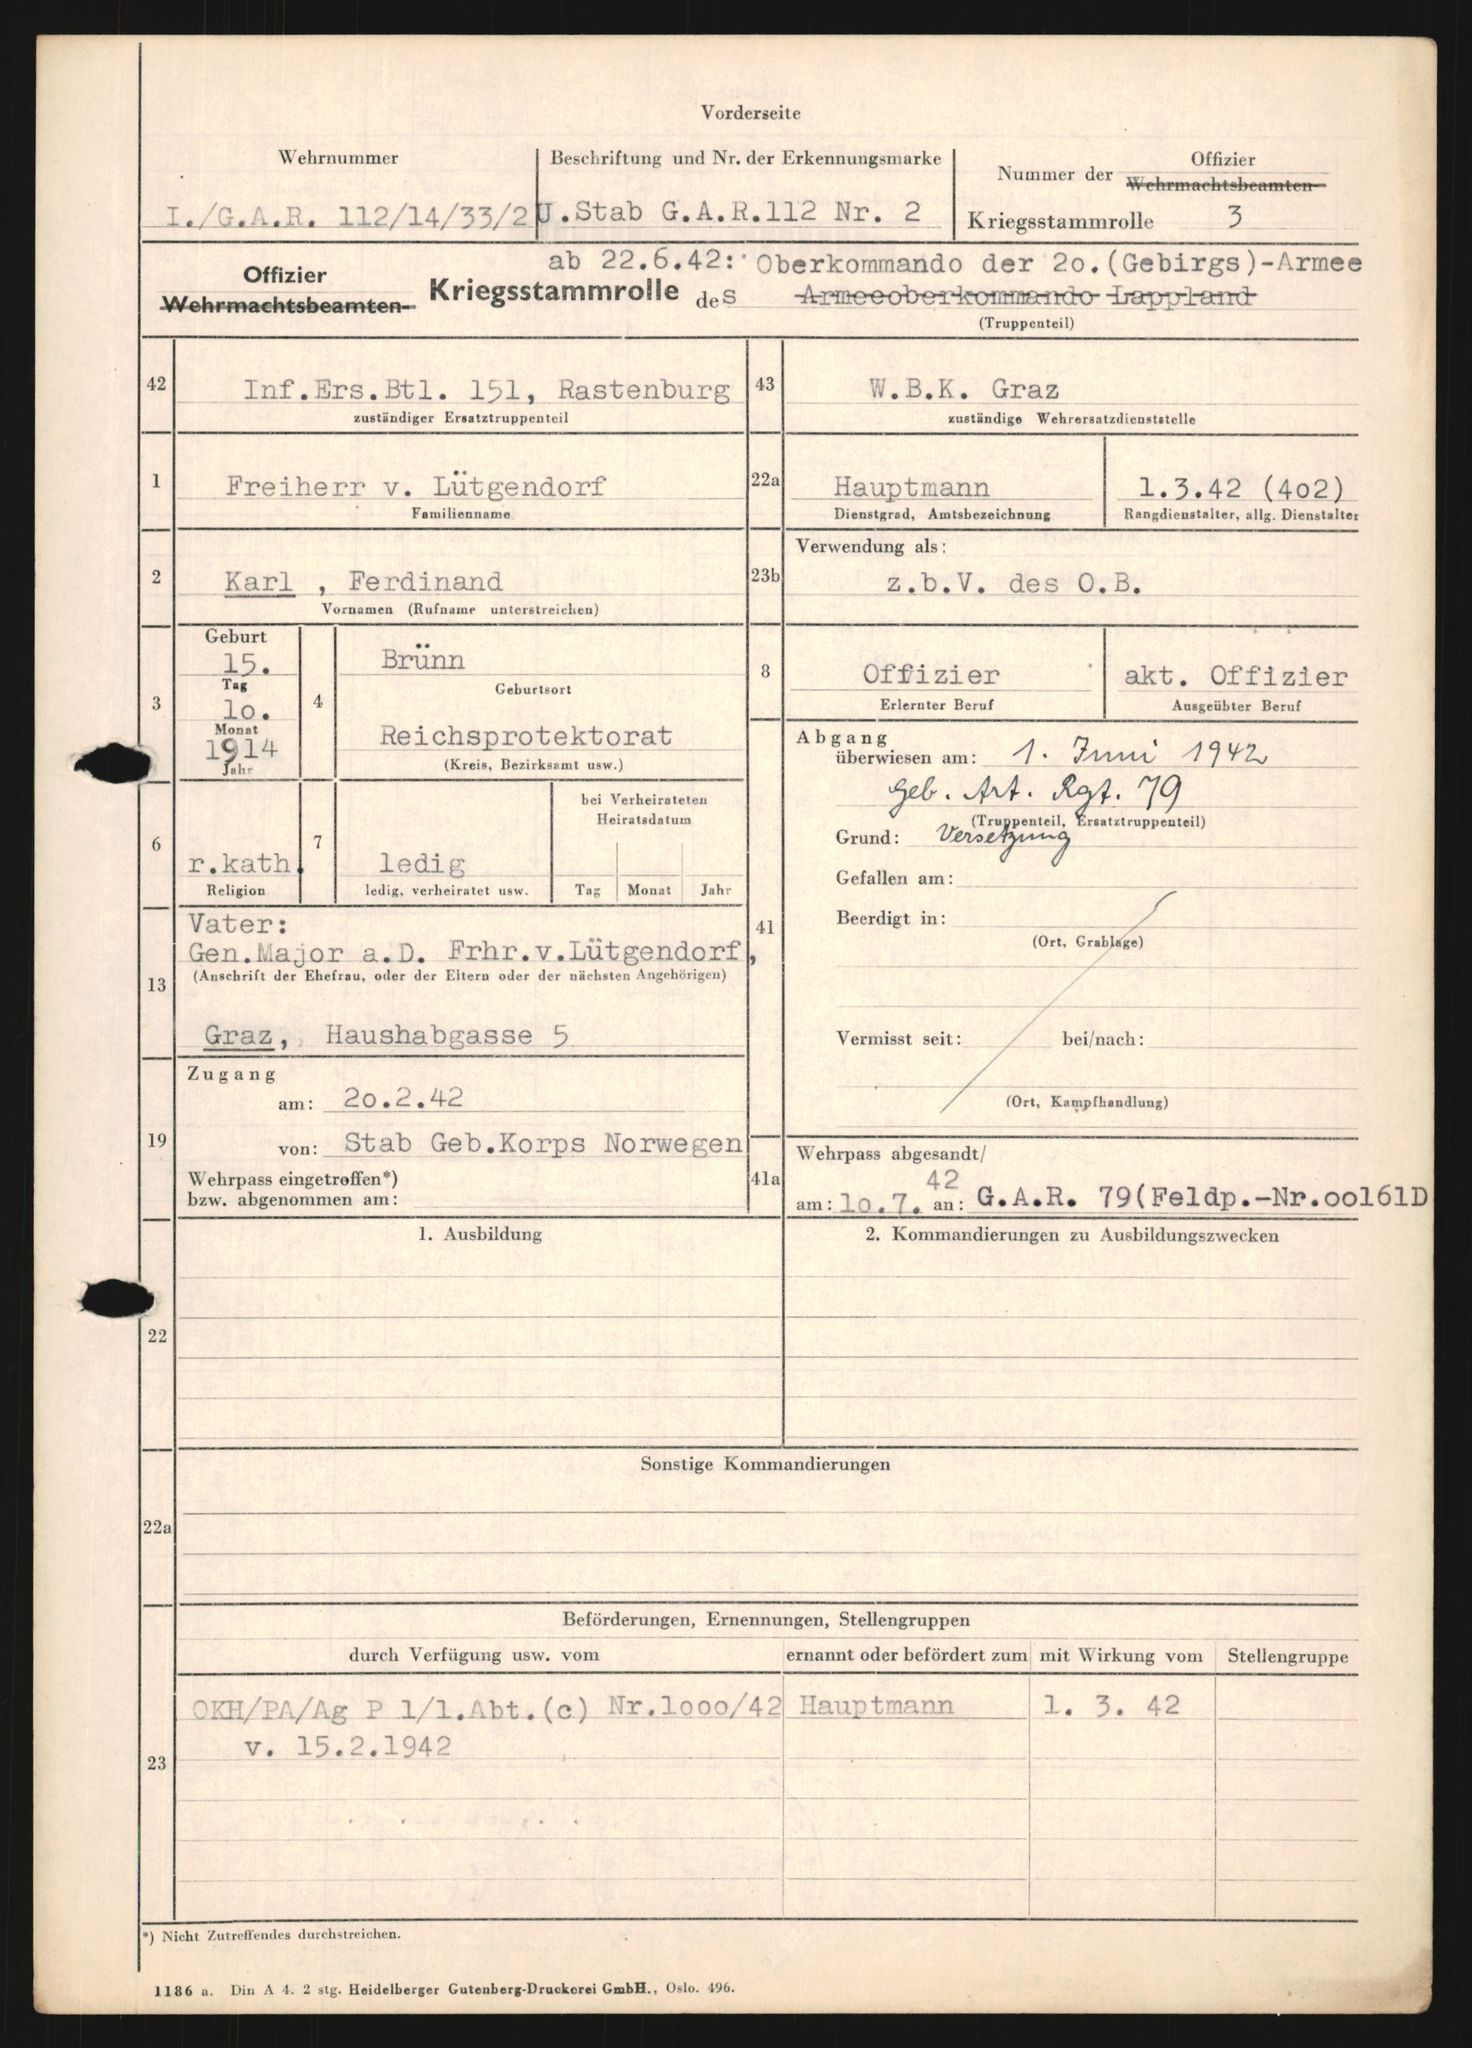 Vorderseite
Wehrnummer
I./G.A.R. 112/14/33/2
Beschriftung und Nr. der Erkennungsmarke
U.Stab G.A.R.112 Nr. 2
Nummer der Offizier
Wehrmachtsbeamten-
Kriegsstammrolle 3
ab 22.6.42: Oberkommando der 2o.(Gebirgs)-Armee
Offizier
Wehrmachtsbeamten- Kriegsstammrolle des Armeeoberkommando Lappland
(Truppenteil)
42
Inf.Ers.Btl. 151, Rastenburg
zuständiger Ersatztruppenteil
43
W.B.K. Graz
zuständige Wehrersatzdienststelle
1
Freiherr v. Lütgendorf
Familienname
22a
Hauptmann
Dienstgrad, Amtsbezeichnung
1.3.42 (4o2)
Rangdienstalter, allg. Dienstalter
2
Karl , Ferdinand
Vornamen (Rufname unterstreichen)
23b
Verwendung als:
z.b.V. des O.B.
3
Geburt
15.
Tag
1o.
Monat
1914
Jahr
4
Brünn
Geburtsort
Reichsprotektorat
(Kreis, Bezirksamt usw.)
8
Offizier
Erlernter Beruf
akt. Offizier
Ausgeübter Beruf
6
r.kath.
Religion
7
ledig
ledig, verheiratet usw.
bei Verheirateten
Heiratsdatum
Tag Monat Jahr
41
Abgang
überwiesen am: 1. Juni 1942
Geb. Art. Rgt. 79
(Truppenteil, Ersatztruppenteil)
Grund: Versetzung
Gefallen am:
Beerdigt in:
(Ort, Grablage)
Vermisst seit: bei/nach:
(Ort, Kampfhandlung)
13
Vater:
Gen.Major a.D. Frhr.v.Lütgendorf,
(Anschrift der Ehefrau, oder der Eltern oder der nächsten Angehörigen)
Graz, Haushabgasse 5
19
Zugang
am: 2o.2.42
von: Stab Geb.Korps Norwegen
Wehrpass eingetroffen*)
bzw. abgenommen am:
41a
Wehrpass abgesandt/
42
am: 1o.7. an: G.A.R. 79(Feldp.-Nr.oo161D
22
1. Ausbildung
2. Kommandierungen zu Ausbildungszwecken
22a
Sonstige Kommandierungen
23
Beförderungen, Ernennungen, Stellengruppen
durch Verfügung usw. vom ernannt oder befördert zum mit Wirkung vom Stellengruppe
OKH/PA/Ag P 1/1.Abt.(c) Nr.1ooo/42 Hauptmann 1. 3. 42
v. 15.2.1942
*) Nicht Zutreffendes durchstreichen.
1186 a. Din A 4. 2 stg. Heidelberger Gutenberg-Druckerei GmbH., Oslo. 496.